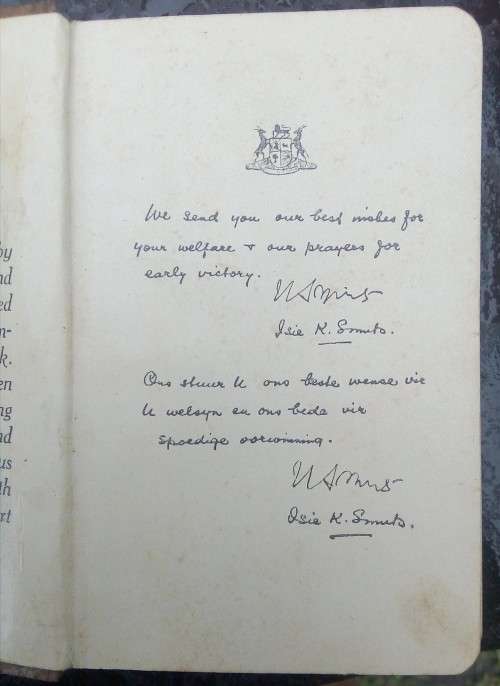 by
nd
ed
n-
k.
en
ng
nd
us
th
rt
We send you our best wishes for
your welfare & our prayers for
early victory.
J C Smuts
Isie K. Smuts.
Ons stuur U ons beste wense vir
U welsyn en ons bede vir
spoedige oorwinning.
J C Smuts
Isie K. Smuts.